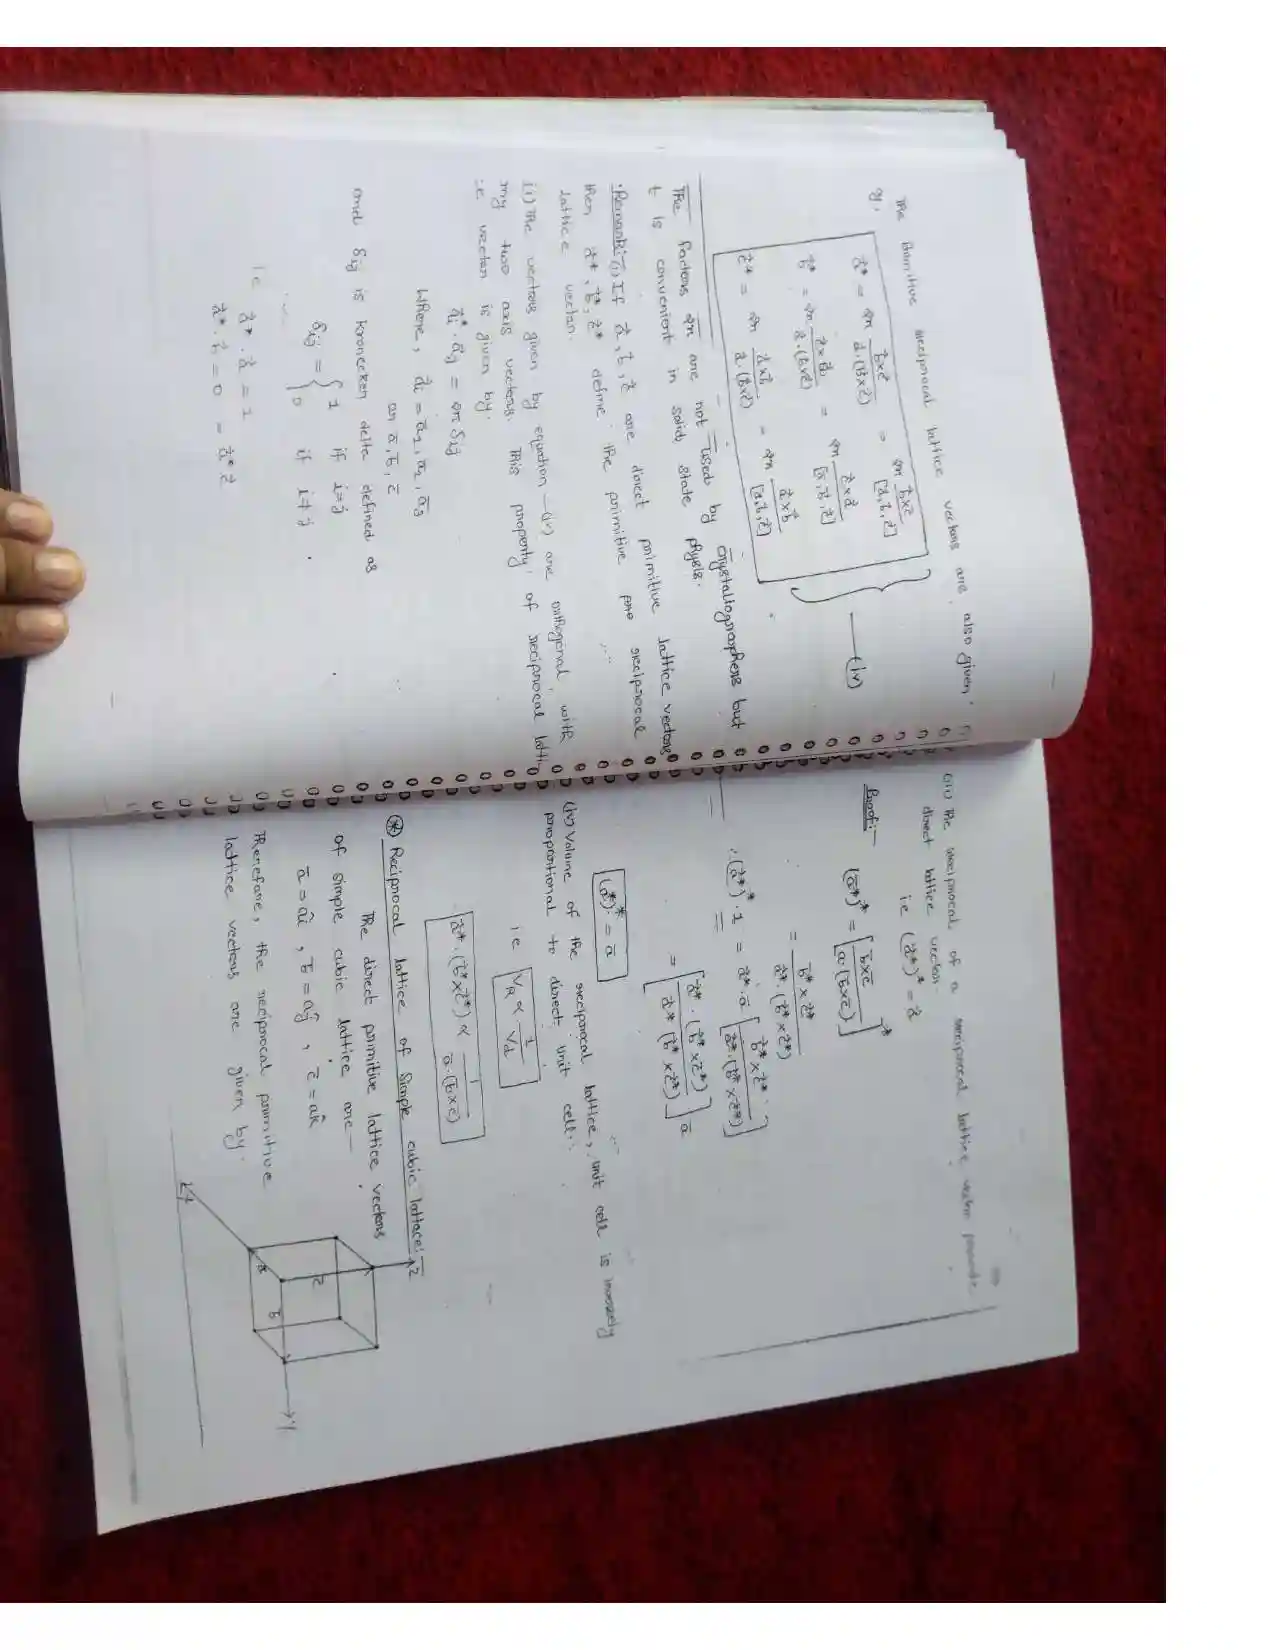 The primitive reciprocal lattice vectors are also given
by,
a⃗* = 2π b⃗×c⃗ / a⃗·(b⃗×c⃗) = 2π b⃗×c⃗ / [a⃗,b⃗,c⃗]
b⃗* = 2π c⃗×a⃗ / a⃗·(b⃗×c⃗) = 2π c⃗×a⃗ / [a⃗,b⃗,c⃗]
c⃗* = 2π a⃗×b⃗ / a⃗·(b⃗×c⃗) = 2π a⃗×b⃗ / [a⃗,b⃗,c⃗]
—(iv)
The factors 2π are not used by crystallographers but
t is convenient in solid state physis.
·Remark:- (i) If a⃗, b⃗, c⃗ are direct primitive lattice vectors
then a⃗*, b⃗*, c⃗* define the primitive reciprocal
lattice vector.
(ii) The vectors given by equation —(iv) are orthogonal with
my two axis vectors. This property of reciprocal latti
ce vector is given by.
a⃗i* · a⃗j = 2π δij
where, a⃗i = a̅1, a̅2, a̅3
or a̅, b̅, c̅
and δij is kronecker delta defined as
δij = { 1 if i=j
0 if i≠j .
i.e a⃗*·a⃗ = 1
a⃗*·b⃗ = 0 = a⃗*c⃗
(iii) The reciprocal of a reciprocal lattice vector
direct lattice vector.
i.e (a⃗*)* = a⃗
Proof:- (a̅*)* = [b̅×c̅ / a·(b̅×c̅)]*
= b⃗*×c⃗* / a⃗*·(b⃗*×c⃗*)
∴(a⃗*)*·1 = a⃗*·a̅ [b⃗*×c⃗* / a⃗*·(b⃗*×c⃗*)]
= [a⃗*·(b⃗*×c⃗*) / a⃗*(b⃗*×c⃗*)] a̅
(a⃗*)* = a̅
(iv) Volume of the reciprocal lattice, unit cell is inversely
proportional to direct unit cell:
i.e VR ∝ 1/Vd
a⃗*·(b⃗*×c⃗*) ∝ 1 / a̅·(b̅×c̅)
⊛ Reciprocal lattice of Simple cubic lattace:-
The direct primitive lattice vectors
of simple cubic lattice are—
a̅ = aî, b̅ = aĵ, c̅ = ak̂
Therefore, the reciprocal primitive
lattice vectors are given by.
z
a̅
c̅
b̅
y
x